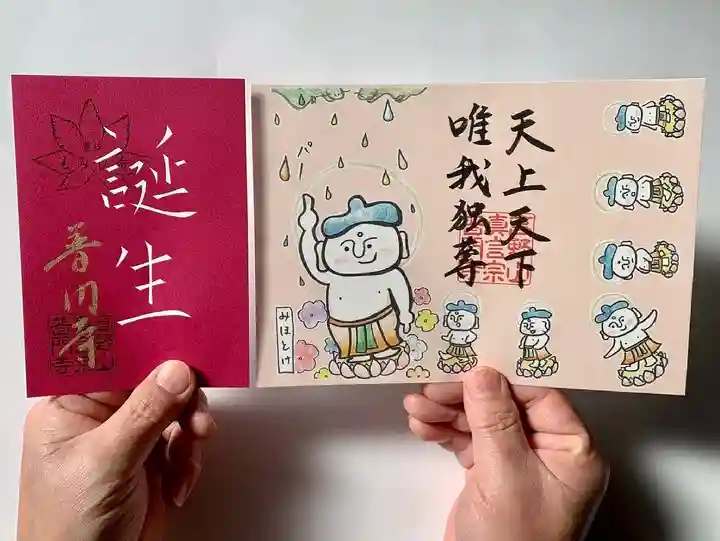 誕生
普門寺
天上天下
唯我独尊
パー
みほとけ
真言宗